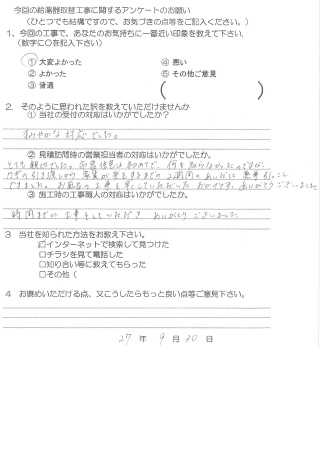 今回の給湯器取替工事に関するアンケートのお願い
(ひとつでも結構ですので、お気づきの点等をご記入ください。)
1、今回の工事で、あなたのお気持ちに一番近い印象を教えて下さい。
(数字に○を記入下さい)
① 大変よかった ④ 悪い
② よかった ⑤ その他ご意見
③ 普通 ( )
2. そのように思われた訳を教えていただけませんか
① 当社の受付の対応はいかがでしたか?
すみやかな対応でした。
② 見積訪問時の営業担当者の対応はいかがでしたか。
とても親切でした。
の引き渡しから
2週間のあいだに無事引こし
できました。お風呂の工事も早くしていただき たすかりです。ありがとうございました
③ 施工時の工事職人の対応はいかがでしたか?
時間までに工事をしていただき ありがとうございました
3 当社を知られた方法をお教え下さい。
☑インターネットで検索して見つけた
□チラシを見て電話した
□知り合い等に教えてもらった
□その他(
4 お褒めいただける点、又こうしたらもっと良い点等ご意見下さい。
27 年 9 月 30 日